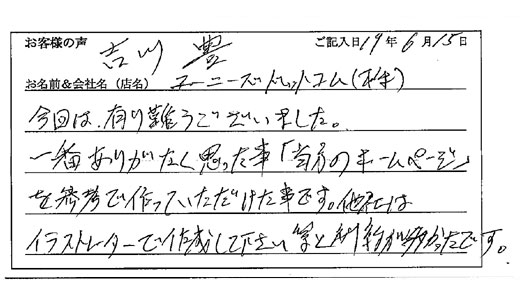 お客様の声 吉川 豊 ご記入日19年6月15日
お名前&会社名(店名) ユーニーズドットコム(株)
今回は、有り難うございました。
一番ありがたく思った事「当方のホームページ」
を参考で作っていただけた事です。他社は
イラストレーターで作成して下さい等と制約が多かったです。